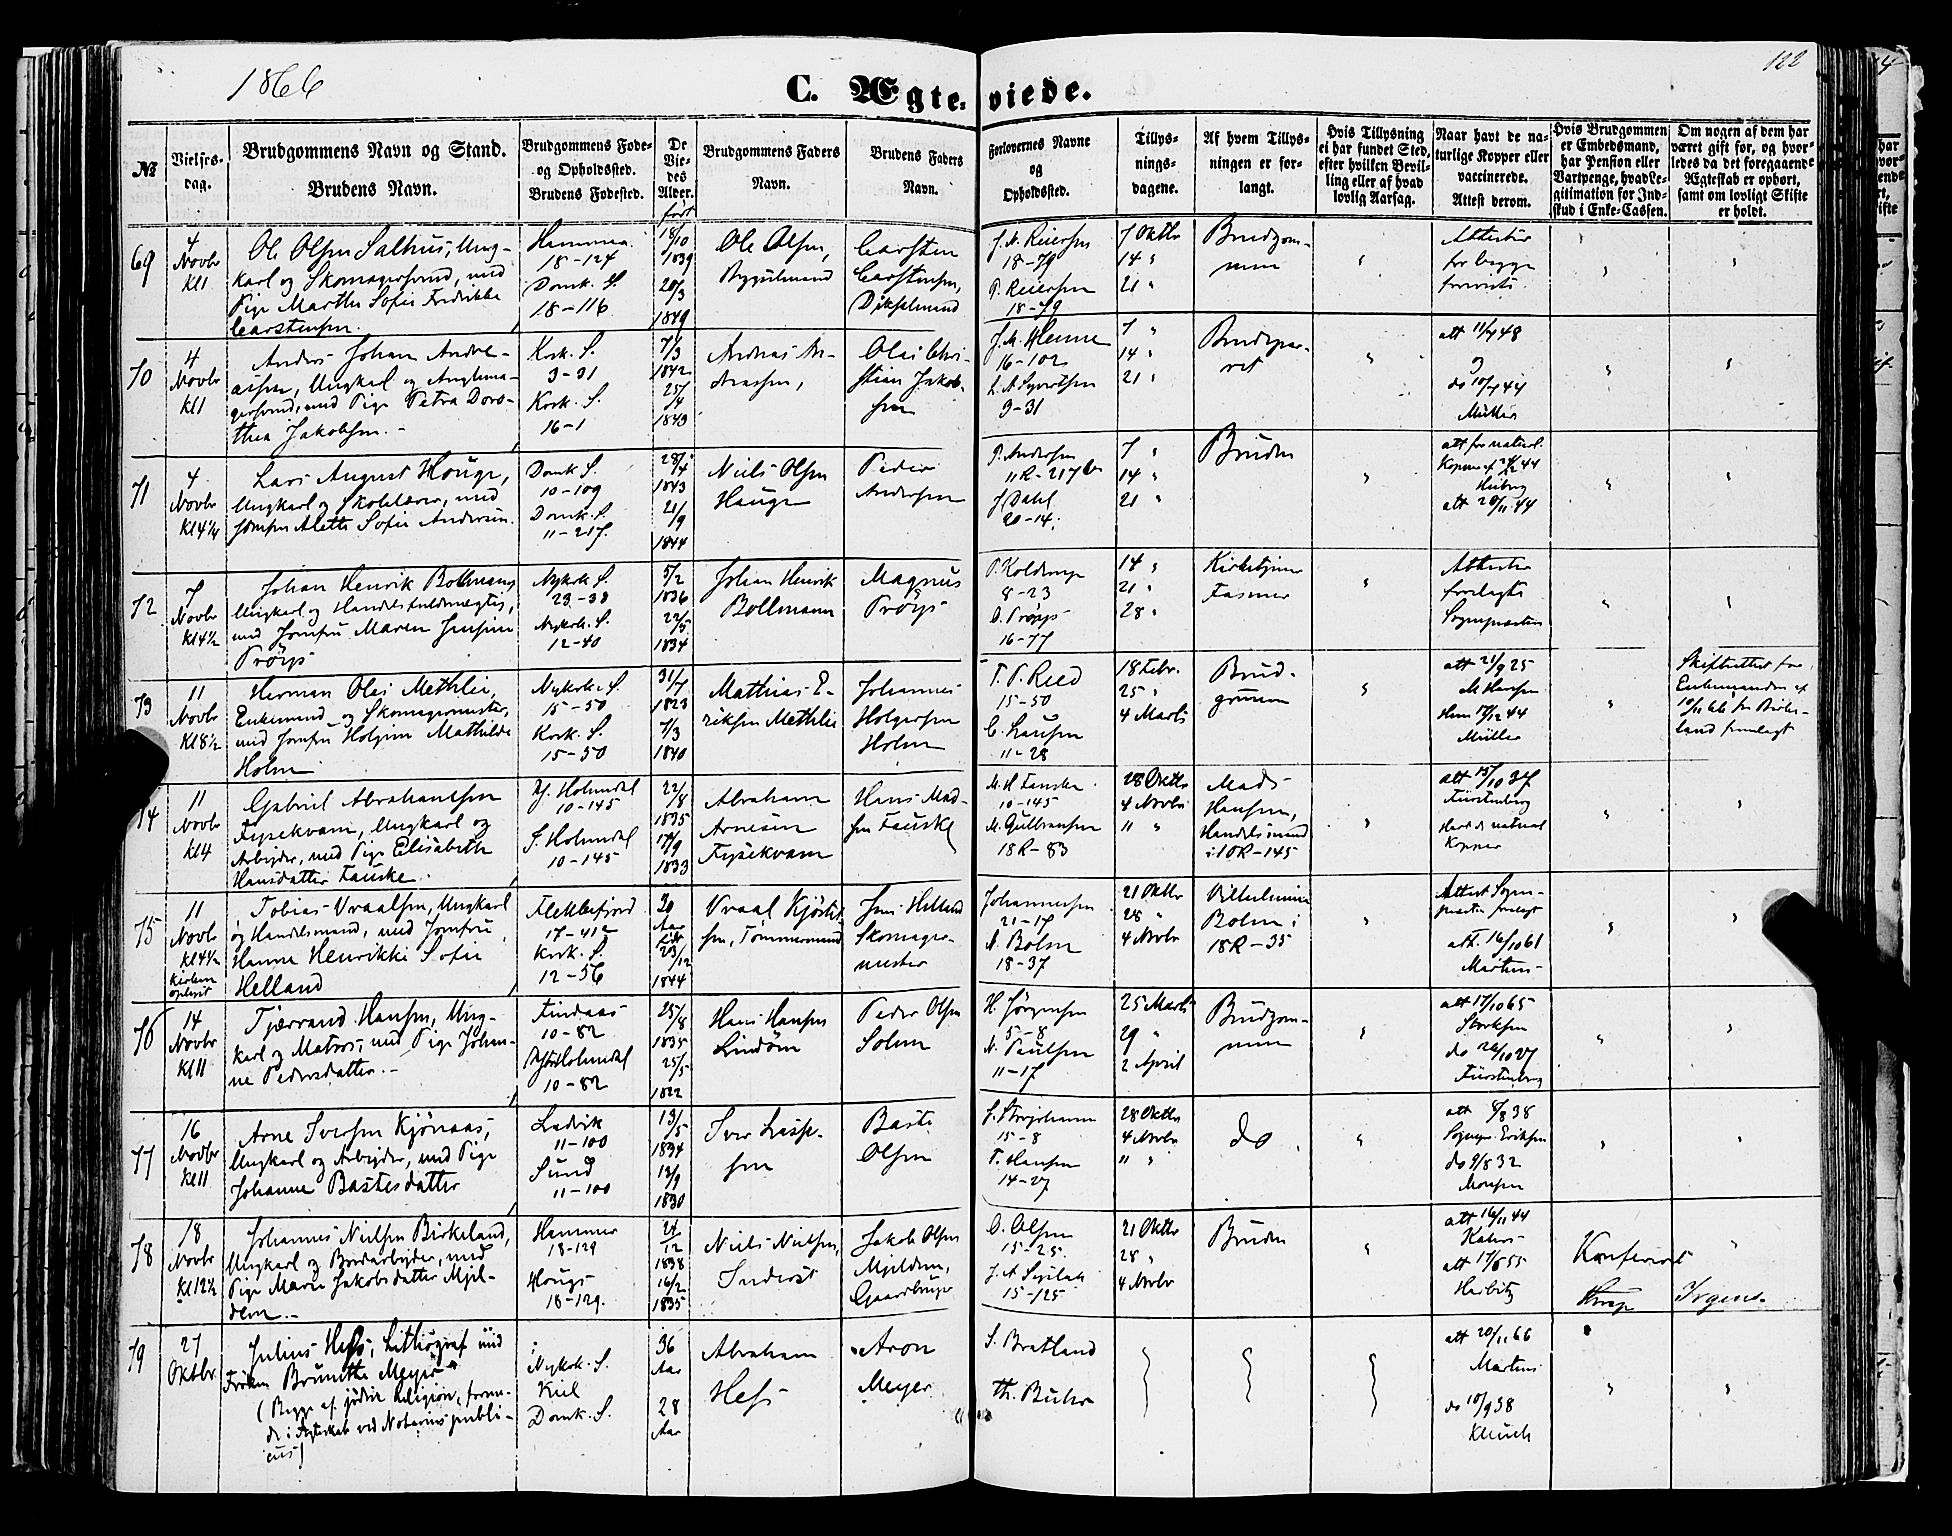 1866
C. Ægte- viede.
122
No
Vielses-
dag.
Brudgommens Navn og Stand.
Brudens Navn.
Brudgommens Føde-
og Opholdssted.
Brudens Fødested.
De
Vie-
des
Alder.
født
Brudgommens Faders
Navn.
Brudens Faders
Navn.
Forlovernes Navne
og
Opholdssted.
Tillys-
nings-
dagene.
Af hvem Tillys-
ningen er for-
langt.
Hvis Tillysning
ei har fundet Sted,
efter hvilken Bevil-
ling eller af hvad
lovlig Aarsag.
Naar havt de na-
turlige Kopper eller
vaccinerede.
Attest derom.
Hvis Brudgommen
er Embedsmand,
har Pension eller
Vartpenge, hvad Le-
gitimation for Ind-
skud i Enke-Cassen.
Om nogen af dem har
været gift før, og hvor-
ledes da det foregaaende
Ægteskab er ophørt,
samt om lovligt Skifte
er holdt.
69
4
Novbr
Kl 1
Ole Olsen Salhus, Ung-
karl og Skomagersvend, med
Pige Marthe Sofie Fredrikke
Carstensen.
Hammer
18-124
Domk. S.
18-116
18/10
1839
20/3
1849
Ole Olsen,
Carsten
Carstensen,
J. N. Reiersen
18-79
P. Reiersen
18-79
7 Oktbr
14 "
21 "
Brudgom-
men
Attester
for begge
foreviste.
70
4
Novbr
Kl 1
Anders Johan Andre-
asen, Ungkarl og
med Pige Petra Doro-
thea Jakobsen.
Kork. S.
3-31
Kork. S.
16-1
7/3
1842
25/4
1843
Andreas An-
dreasen,
Olai Chri-
stian Jakob-
sen
16-102
3-31
7 "
14 "
21 "
Brudepar-
ret
att 11/7 48
do 10/4 44
Müller
71
4
Novbr
Kl 4 1/4
Lars August Houge,
Ungkarl og Skolelærer, med
Jomfru Alette Sofie Andersen.
Domk S.
10-109
Domk. S.
11-217.
28/4
1843
21/9
1844
Niels Olsen
Hauge
Peder
Andersen
P. Andersen
11R-217b
J. Dahl
20-14.
7 "
14 "
21 "
Bruden
att for naturl.
Heiberg
att 20/11 44
72
7
Novbr
Kl 4 1/2
Johan Henrik Bollmann,
Ungkarl og Handelsfuldmægtig,
med Jomfru Maren Jensine
Prøys
Nykrk. S.
23-38
Nykrk. S.
12-40
5/2
1836
22/5
1834
Johan Henrik
Bollmann
Magnus
Prøys
P. Koldrup
8-23
O. Prøys
16-77
14 "
21 "
28 "
Fasmer
Attester
forelagte
Sognepræsten
73
11
Novbr
Kl 8 1/2
Herman Olai Methlie,
Enkemand og Skomagermester,
med Jomfru Holgine Mathilde
Holm
Nykrk. S.
15-50
Kork. S.
15-50
31/7
1823
7/3
1840
Mathias E-
riksen Methlie
Johannes
Holgersen
Holm
T. P. Reed
15-50
11-28
18 Febr.
25 "
4 Marts
Brud-
gommen
att 21/9 25
M Hansen
Hun 17/12 44
Müller
Skifteattest for
Enkemanden af
10/11 66 fra Birke-
land fremlagt
74
11
Novbr
Kl 4
Gabriel Abrahamsen
Fysekvam, Ungkarl og
Arbeider, med Pige Elisabeth
Hansdatter Fauske.
Y. Holmdal
10-145
S. Holmdal
10-145
22/8
1835
17/9
1833
Abraham
Arnesen
Fysekvam
Hans Mad-
sen Fauske
M. H. Fauske
10-145
M. Gulbransen
18R-83
28 Oktbr
4 Novbr
11 "
Mads
Hansen,
Handelsmand
i 10R-145
att 15/10 37
Fürstenberg
Havt de naturl
Kopper
75
11
Novbr
Kl 4 1/2
Tobias Vraalsen, Ungkarl
og Handelsmand, med Jomfru
Hanne Henrikke Sofie
Helland
Flekkefjord
17-412
Kork. S.
12-56
30
Aar
23/12
1844
Vraal
sen, Tømmermand
Jens Helland
Skomager-
mester
Johannesen
21-17
N. Bolm
18-37
21 Oktbr
28 "
4 Novbr
Vilhelmine
Bolm i
18R-35
Attest Sogne-
præsten forelagt
att. 16/10 61
Martens
76
14
Novbr
Kl 11
Tjerrand Hansen, Ung-
karl og Matros, med Pige Johan-
ne Pedersdatter.
Findaas
10-82
Holmdal
10-82
25/8
1835
25/5
1822
Hans Hansen
Lindøen
Peder Olsen
Solem
H. Jørgensen
5-8
N. Paulsen
11-17
25 Marts
29 "
2 April
Brudgom-
men
att 17/10 65
do 26/10 27
Fürstenberg
77
16
Novbr
Kl 11
Arne Iversen Kjønaas,
Ungkarl og Arbeider, med Pige
Johanne Bastesdatter
Ladvik
11-100
Sund
11-100
13/5
1834
13/9
1830
Iver
sen
Baste
Olsen
15-8
T. Hansen
14-27
28 Oktbr
4 Novbr
11 "
do
att 8/8 38
Eriksen
do 9/8 32
Monsen
78
18
Novbr
Kl 12 1/2
Johannes Nielsen Birkeland,
Ungkarl og Bordarbeider, med
Pige Marie Jakobsdatter Mjel-
dem.
Hammer
18-129
Hougs
18-129.
24/12
1838
16/2
1835
Niels Nielsen,
Jakob Olsen
Mjeldem,
Gaardbruger
O. Olsen
15-25.
15-125
21 Oktbr
28 "
4 Novbr
Bruden
att 16/11 44
att 17/6 55
Konfereret
Irgens.
79
27
Oktbr.
Julius Hess, Lithograf med
Frøken Brunette Meyer
(Begge af jødisk Religion, forene-
de i Ægteskab ved Notarius publi-
cus)
Nykrk. S.
Kiel
Domk. S.
36
Aar
28
Aar
Abraham
Hess
Aron
Meyer
S. Bratland
Th. Buhr
att 20/11 66
Martens
do 10/9 38